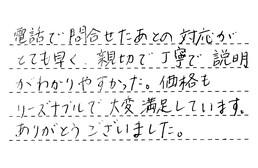 電話で問合せたあとの対応が
とても早く、親切で丁寧で説明
がわかりやすかった。価格も
リーズナブルで大変満足しています。
ありがとうございました。